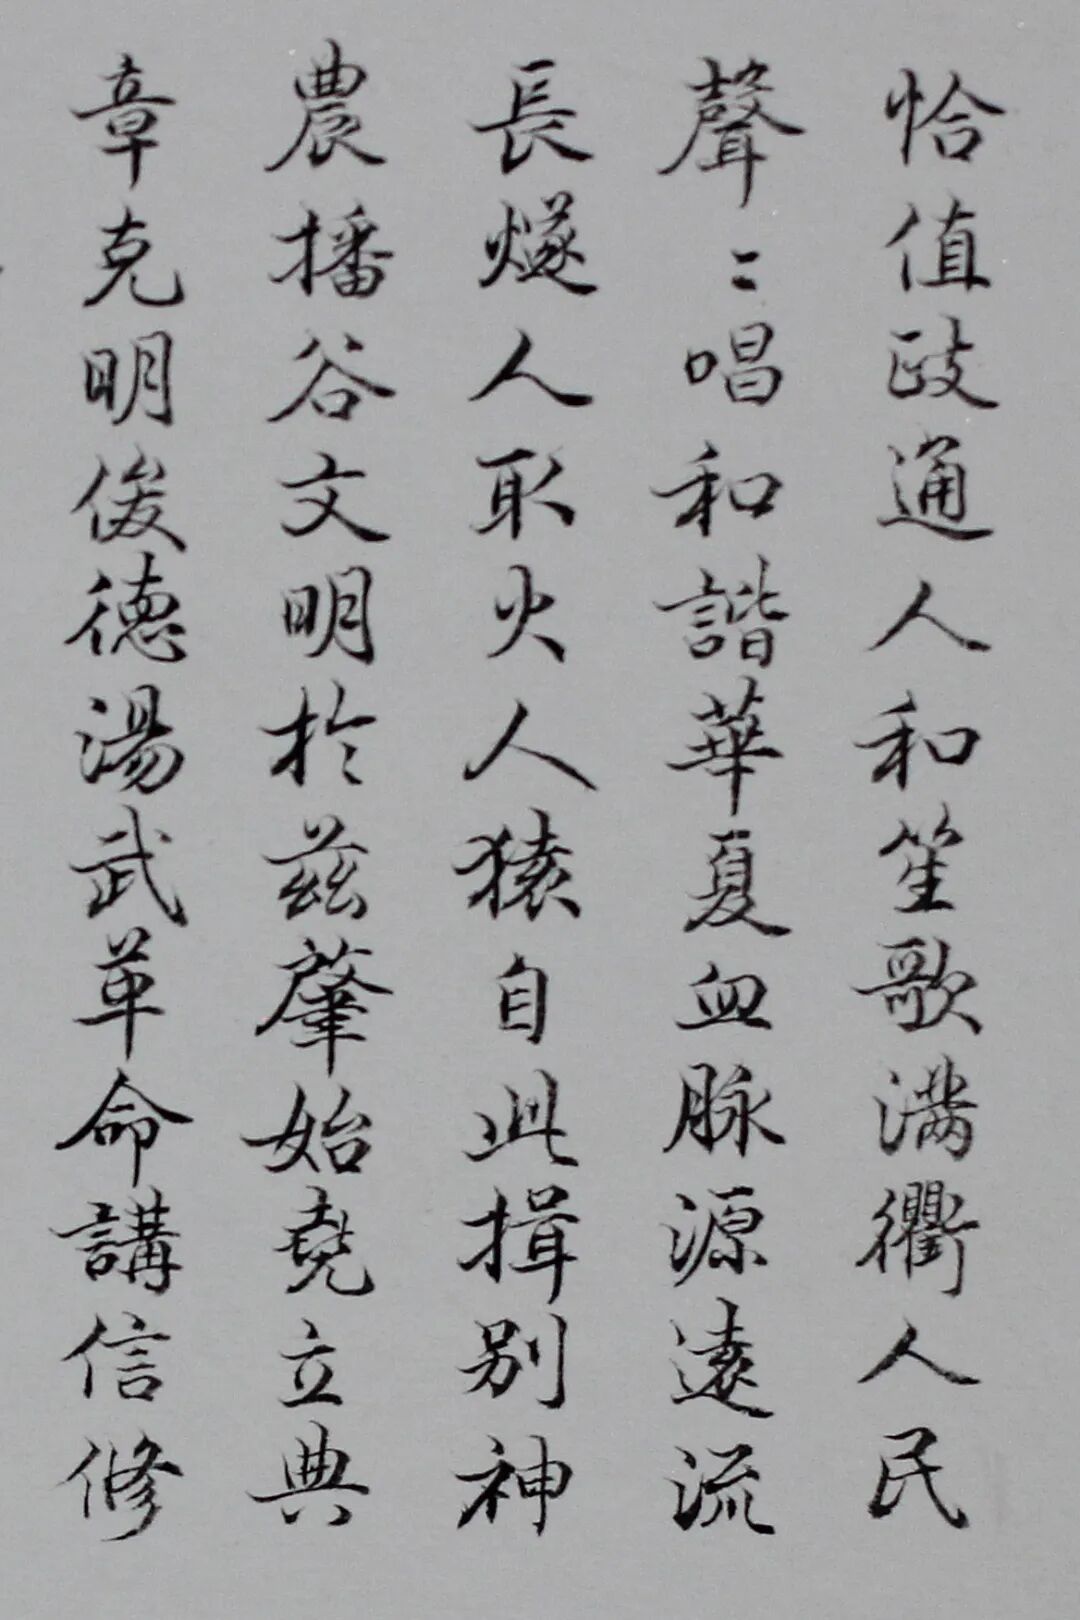 恰值政通人和笙歌满衢人民
聲〻唱和諧華夏血脉源遠流
長燧人取火人猿自此揖别神
農播谷文明於兹肇始堯立典
章克明俊德湯武革命講信修